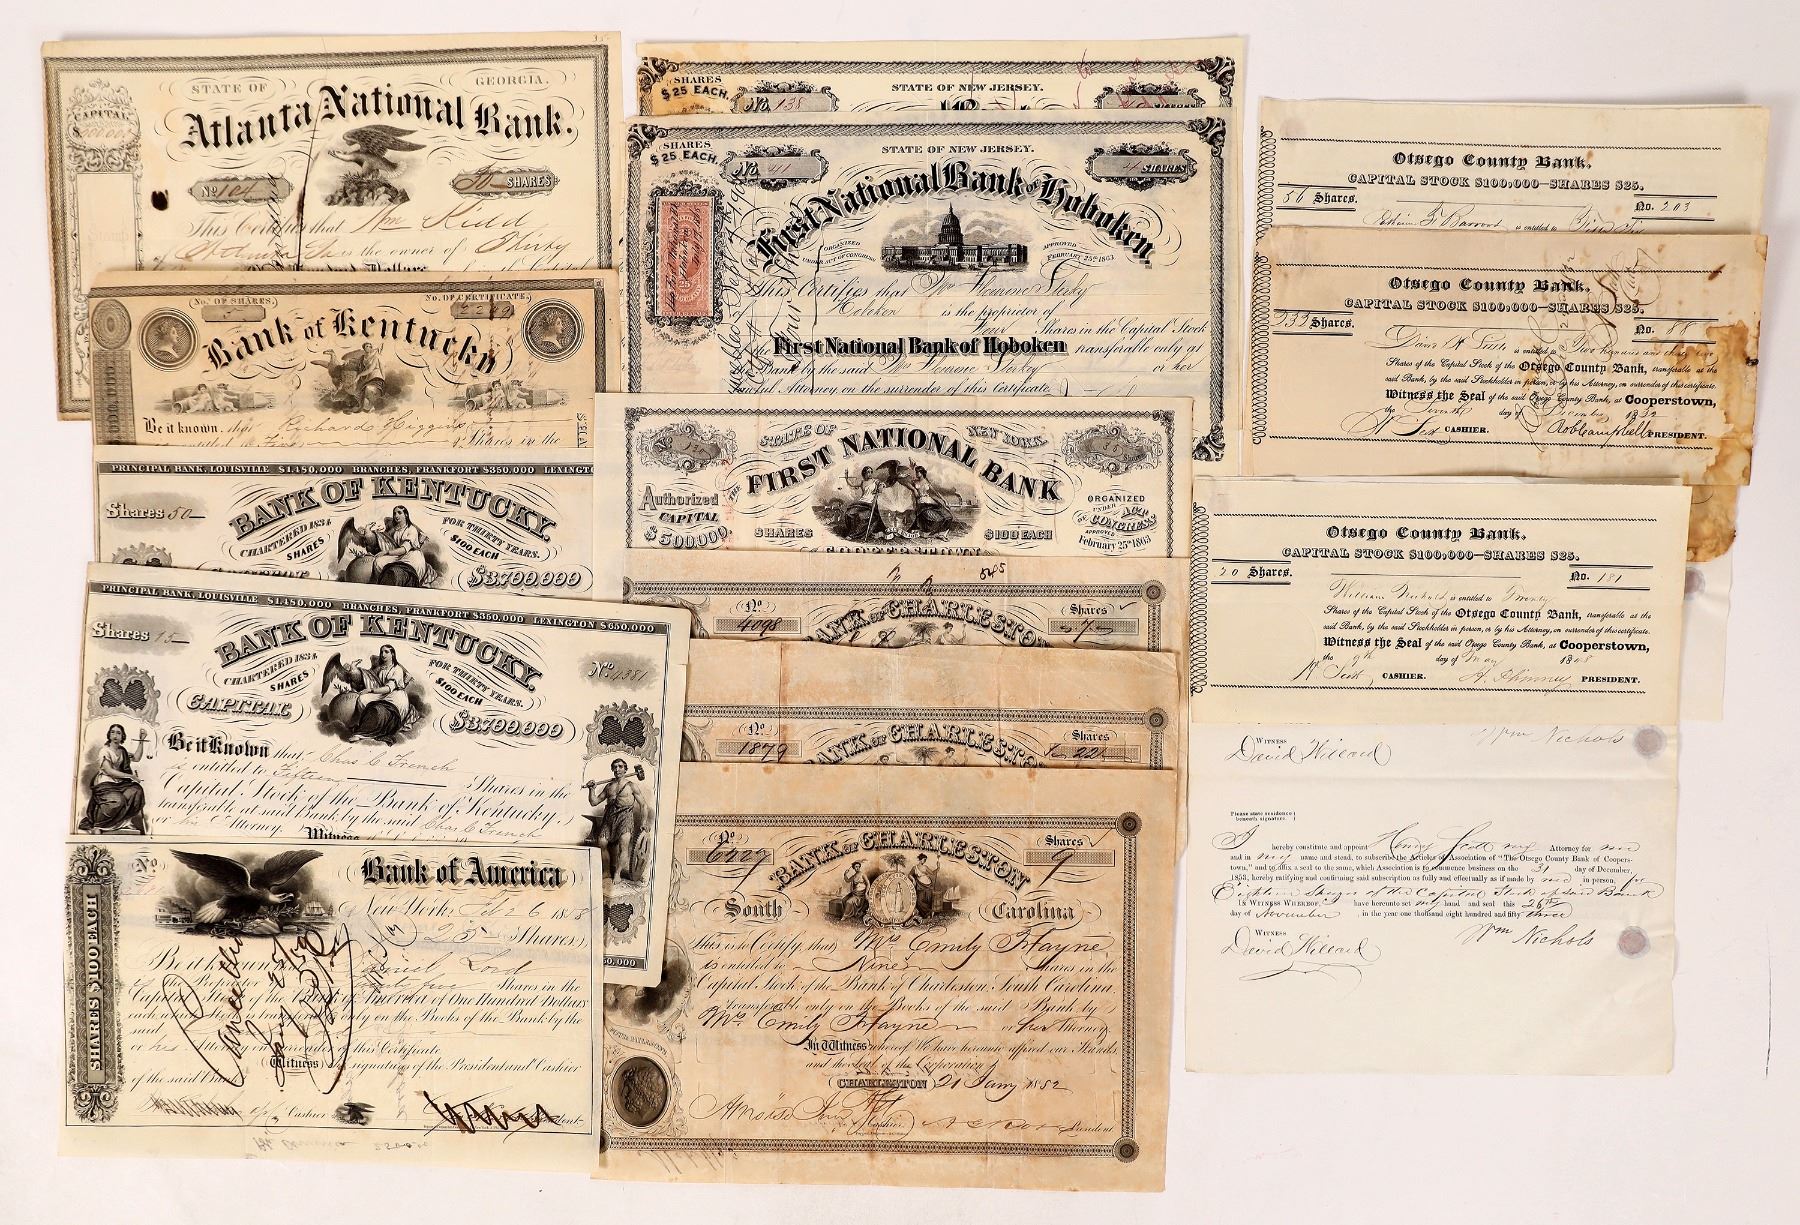 STATE OF GEORGIA.
Atlanta National Bank.
CAPITAL
No. 104
30 SHARES
This Certifies that Wm Kidd
is the owner of Thirty
No. OF SHARES.
No. OF CERTIFICATE.
Bank of Kentucky
Be it known, that Richard Higgins
is entitled to Five Shares in the
PRINCIPAL BANK, LOUISVILLE $1,480,000 BRANCHES, FRANKFORT $350,000 LEXINGTON
Shares 50
BANK OF KENTUCKY.
CHARTERED 1834
FOR THIRTY YEARS.
SHARES
$100 EACH
$3,700,000
PRINCIPAL BANK, LOUISVILLE $1,480,000 BRANCHES, FRANKFORT $350,000 LEXINGTON $650,000
Shares 15
No. 4381
BANK OF KENTUCKY.
CHARTERED 1834
FOR THIRTY YEARS.
SHARES
$100 EACH
CAPITAL
$3,700,000
Be it Known that Chas C French
is entitled to Fifteen Shares in the
Capital Stock of the Bank of Kentucky,
transferable at said Bank by the said Chas C French
or his Attorney.
Witness
No.
Bank of America
SHARES $100 EACH
New York, Feb 26 18
25 Shares
Be it known
Lord
the Proprietor of Shares in the
Capital Stock of the Bank of America of One Hundred Dollars
each which Stock is transferable only on the Books of the Bank by the
said
or his Attorney on surrender of this Certificate
Witness the signature of the President and Cashier
of the said Bank
Cancelled
Cashier
President
SHARES
$25 EACH.
No. 138
STATE OF NEW JERSEY.
SHARES
SHARES
$25 EACH.
No. 41
STATE OF NEW JERSEY.
4 SHARES
First National Bank of Hoboken.
ORGANIZED
UNDER ACT OF CONGRESS
APPROVED
FEBRUARY 25th 1863.
25
This Certifies that Mrs
Hoboken is the proprietor of
Four Shares in the Capital Stock
of the First National Bank of Hoboken transferable only at
the Bank by the said Mrs or her
lawful Attorney on the surrender of this Certificate
No. 120
STATE OF NEW YORK.
THE
FIRST NATIONAL BANK
Authorized
CAPITAL
$500,000.
SHARES
$100 EACH
ORGANIZED
UNDER ACT
OF CONGRESS
APPROVED
February 25th 1863
COOPERSTOWN
No.
4098
Shares
7
BANK OF CHARLESTON
No.
1879
Shares
BANK OF CHARLESTON
No.
6427
Shares
9
BANK OF CHARLESTON
South Carolina
This is to Certify that Mrs Emily Hayne
is entitled to Nine Shares in the
Capital Stock of the Bank of Charleston, South Carolina,
Transferable only on the Books of the said Bank by
Mrs Emily Hayne or her Attorney.
In Witness whereof We have hereunto affixed our Hands
and the Seal of the Corporation
CHARLESTON 21 Jany 1852
Cashier
President
Otsego County Bank.
CAPITAL STOCK $100,000—SHARES $25.
56 Shares.
No. 203
is entitled to Fifty Six
Otsego County Bank.
CAPITAL STOCK $100,000—SHARES $25.
233 Shares.
No. 88
is entitled to Two hundred and thirty three
Shares of the Capital Stock of the Otsego County Bank, transferable at the
said Bank, by the said Stockholder in person, or by his Attorney, on surrender of this certificate.
Witness the Seal of the said Otsego County Bank, at Cooperstown,
the Seventh day of December 1832
H Scott CASHIER.
Rob Campbell PRESIDENT.
Otsego County Bank.
CAPITAL STOCK $100,000—SHARES $25.
20 Shares.
No. 181
William Nichols is entitled to Twenty
Shares of the Capital Stock of the Otsego County Bank, transferable at the
said Bank, by the said Stockholder in person, or by his Attorney, on surrender of this certificate.
Witness the Seal of the said Otsego County Bank, at Cooperstown,
the 9th day of May 1848
H Scott CASHIER.
PRESIDENT.
WITNESS
David Hillard
Wm Nichols
Please state residence
beneath signature.
I hereby constitute and appoint Henry Scott my Attorney for me
and in my name and stead, to subscribe the Articles of Association of "The Otsego County Bank of Coopers-
town," and to affix a seal to the same, which Association is to commence business on the 31 day of December,
1853, hereby ratifying and confirming said subscription as fully and effectually as if made by me in person, for
Eighteen Shares of the Capital Stock of said Bank
IN WITNESS WHEREOF, I have hereunto set my hand and seal this 26th
day of November in the year one thousand eight hundred and fifty three
WITNESS
David Hillard
Wm Nichols